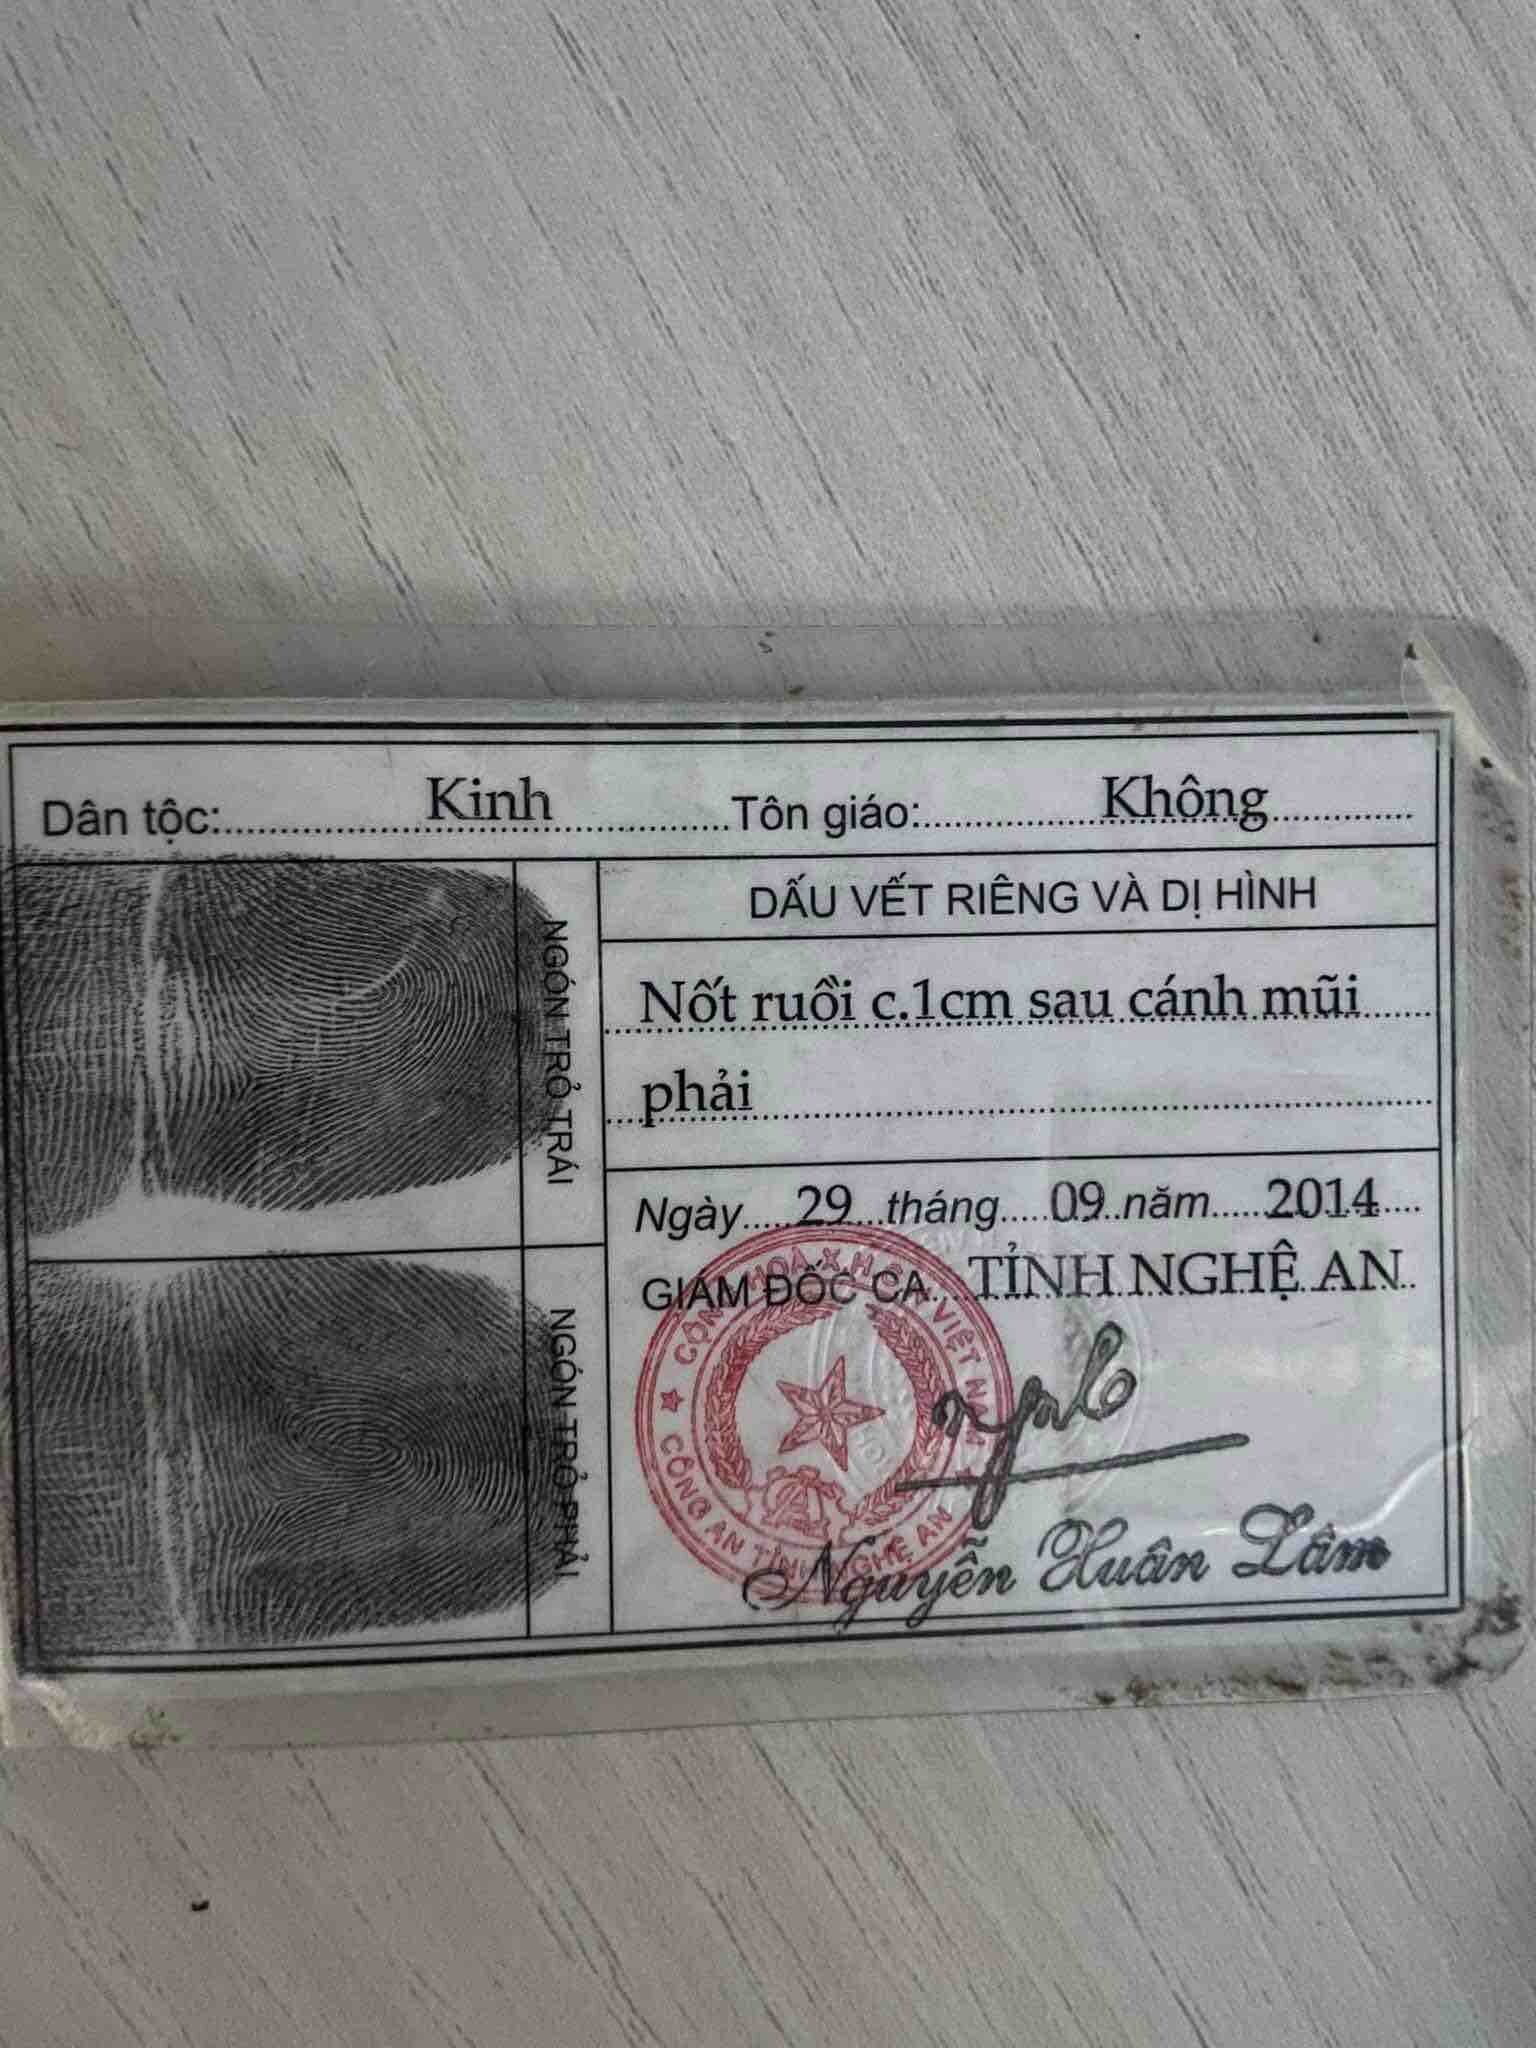 Dân tộc: Kinh Tôn giáo: Không
NGÓN TRỎ TRÁI
NGÓN TRỎ PHẢI
DẤU VẾT RIÊNG VÀ DỊ HÌNH
Nốt ruồi c.1cm sau cánh mũi
phải
Ngày 29 tháng 09 năm 2014
GIÁM ĐỐC CA TỈNH NGHỆ AN
CỘNG HOÀ X.H.C.N VIỆT NAM
CÔNG AN TỈNH NGHỆ AN
Nguyễn Xuân Lâm